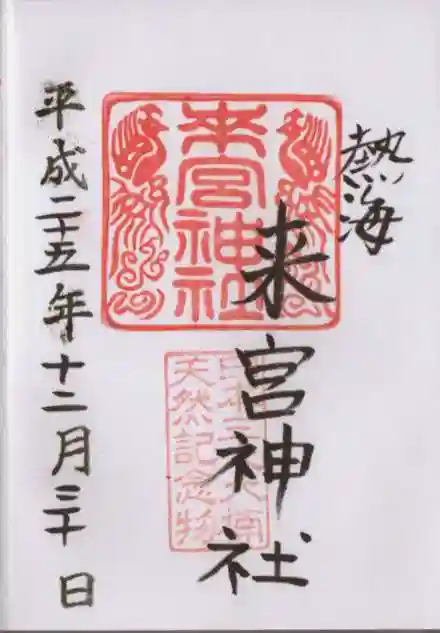 熱海
来宮神社
来宮神社
日本三大楠
天然記念物
平成二十五年十二月三十日